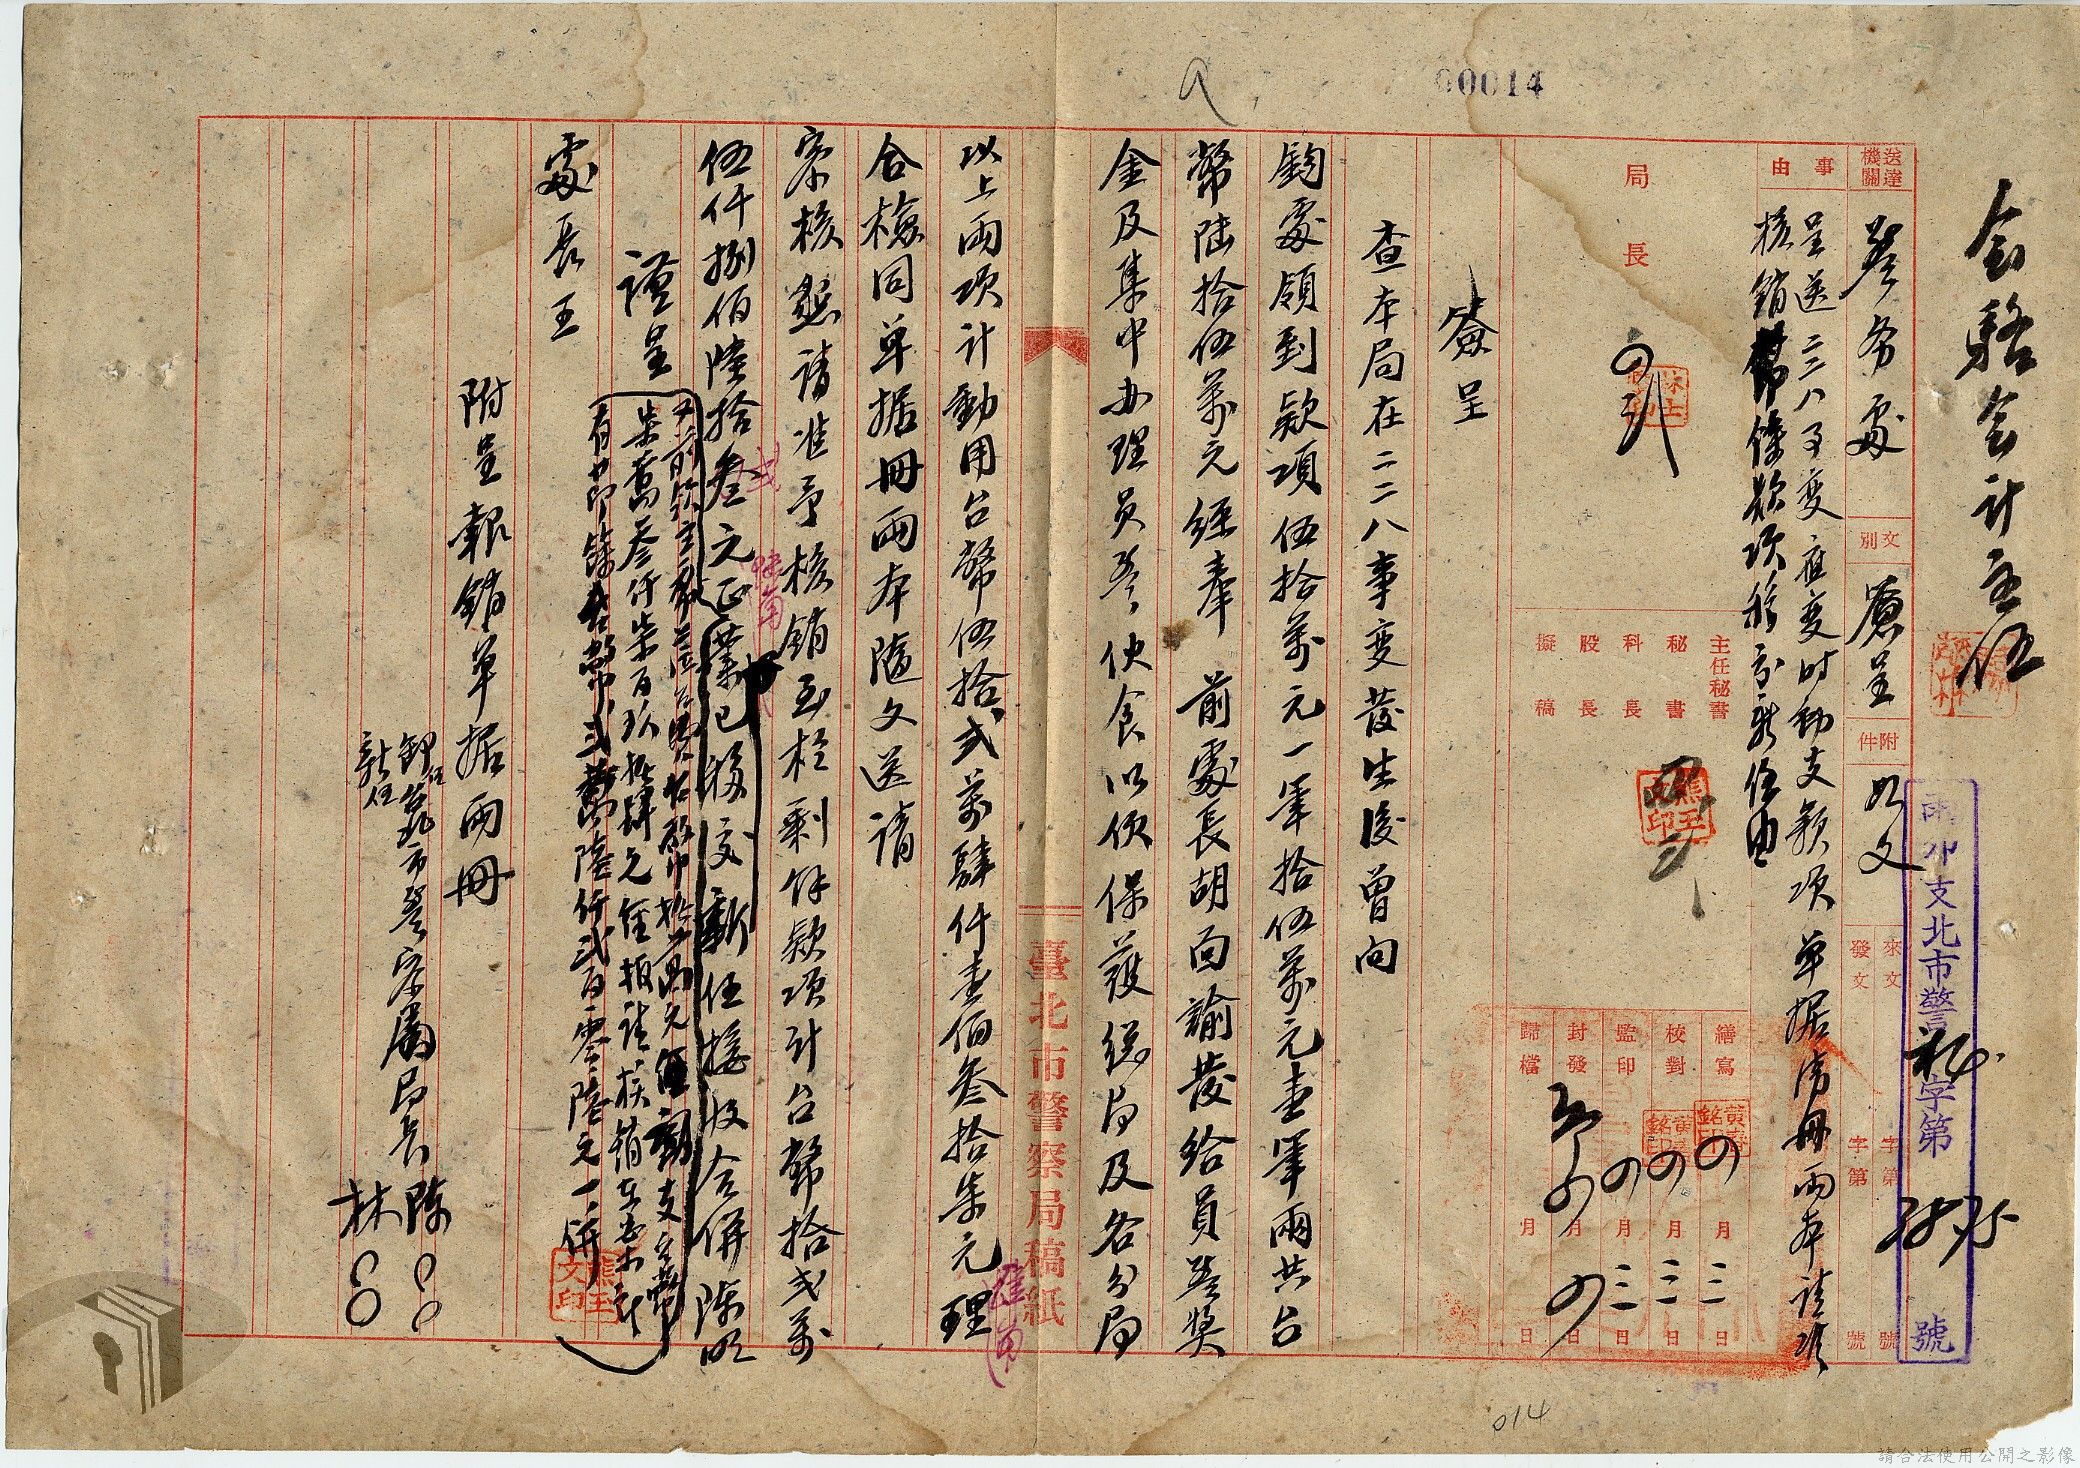 00014
會駱會計主任
送達機關
警務處
文別
簽呈
附件
如文
來文 字第 號
發文 字第 號
卯支北市警秘字第 號
事由
呈送二二八事變應變時動支款項單據清冊兩本請准
核銷餘款項移交新任由
局長
主任秘書
秘書
科長
股長
擬稿
繕寫 月 日
校對 月 日
監印 月 日
封發 月 日
歸檔 月 日
簽呈
查本局在二二八事變發生後曾向
鈞處領到款項伍拾萬元一筆拾伍萬元壹筆兩共台
幣陸拾伍萬元經奉 前處長胡面諭發給員警獎
金及集中辦理員警伙食以便保護總局及各分局
臺北市警察局稿紙
以上兩項計動用台幣伍拾弍萬肆仟壹佰叁拾柒元理
合檢同單據冊兩本隨文送請
察核懇請准予核銷至於剩餘款項計台幣拾弍萬
伍仟捌佰陸拾叁元正業已移交新任接收合併陳明
謹呈
柒萬叁仟柒百玖拾肆元經報請核銷在案
有節餘台幣弍萬陸仟弍百零陸元一併
處長王
附呈報銷單據兩冊
卸任
新任
台北市警察局局長 陳〇〇
林〇〇
014
請合法使用公開之影像